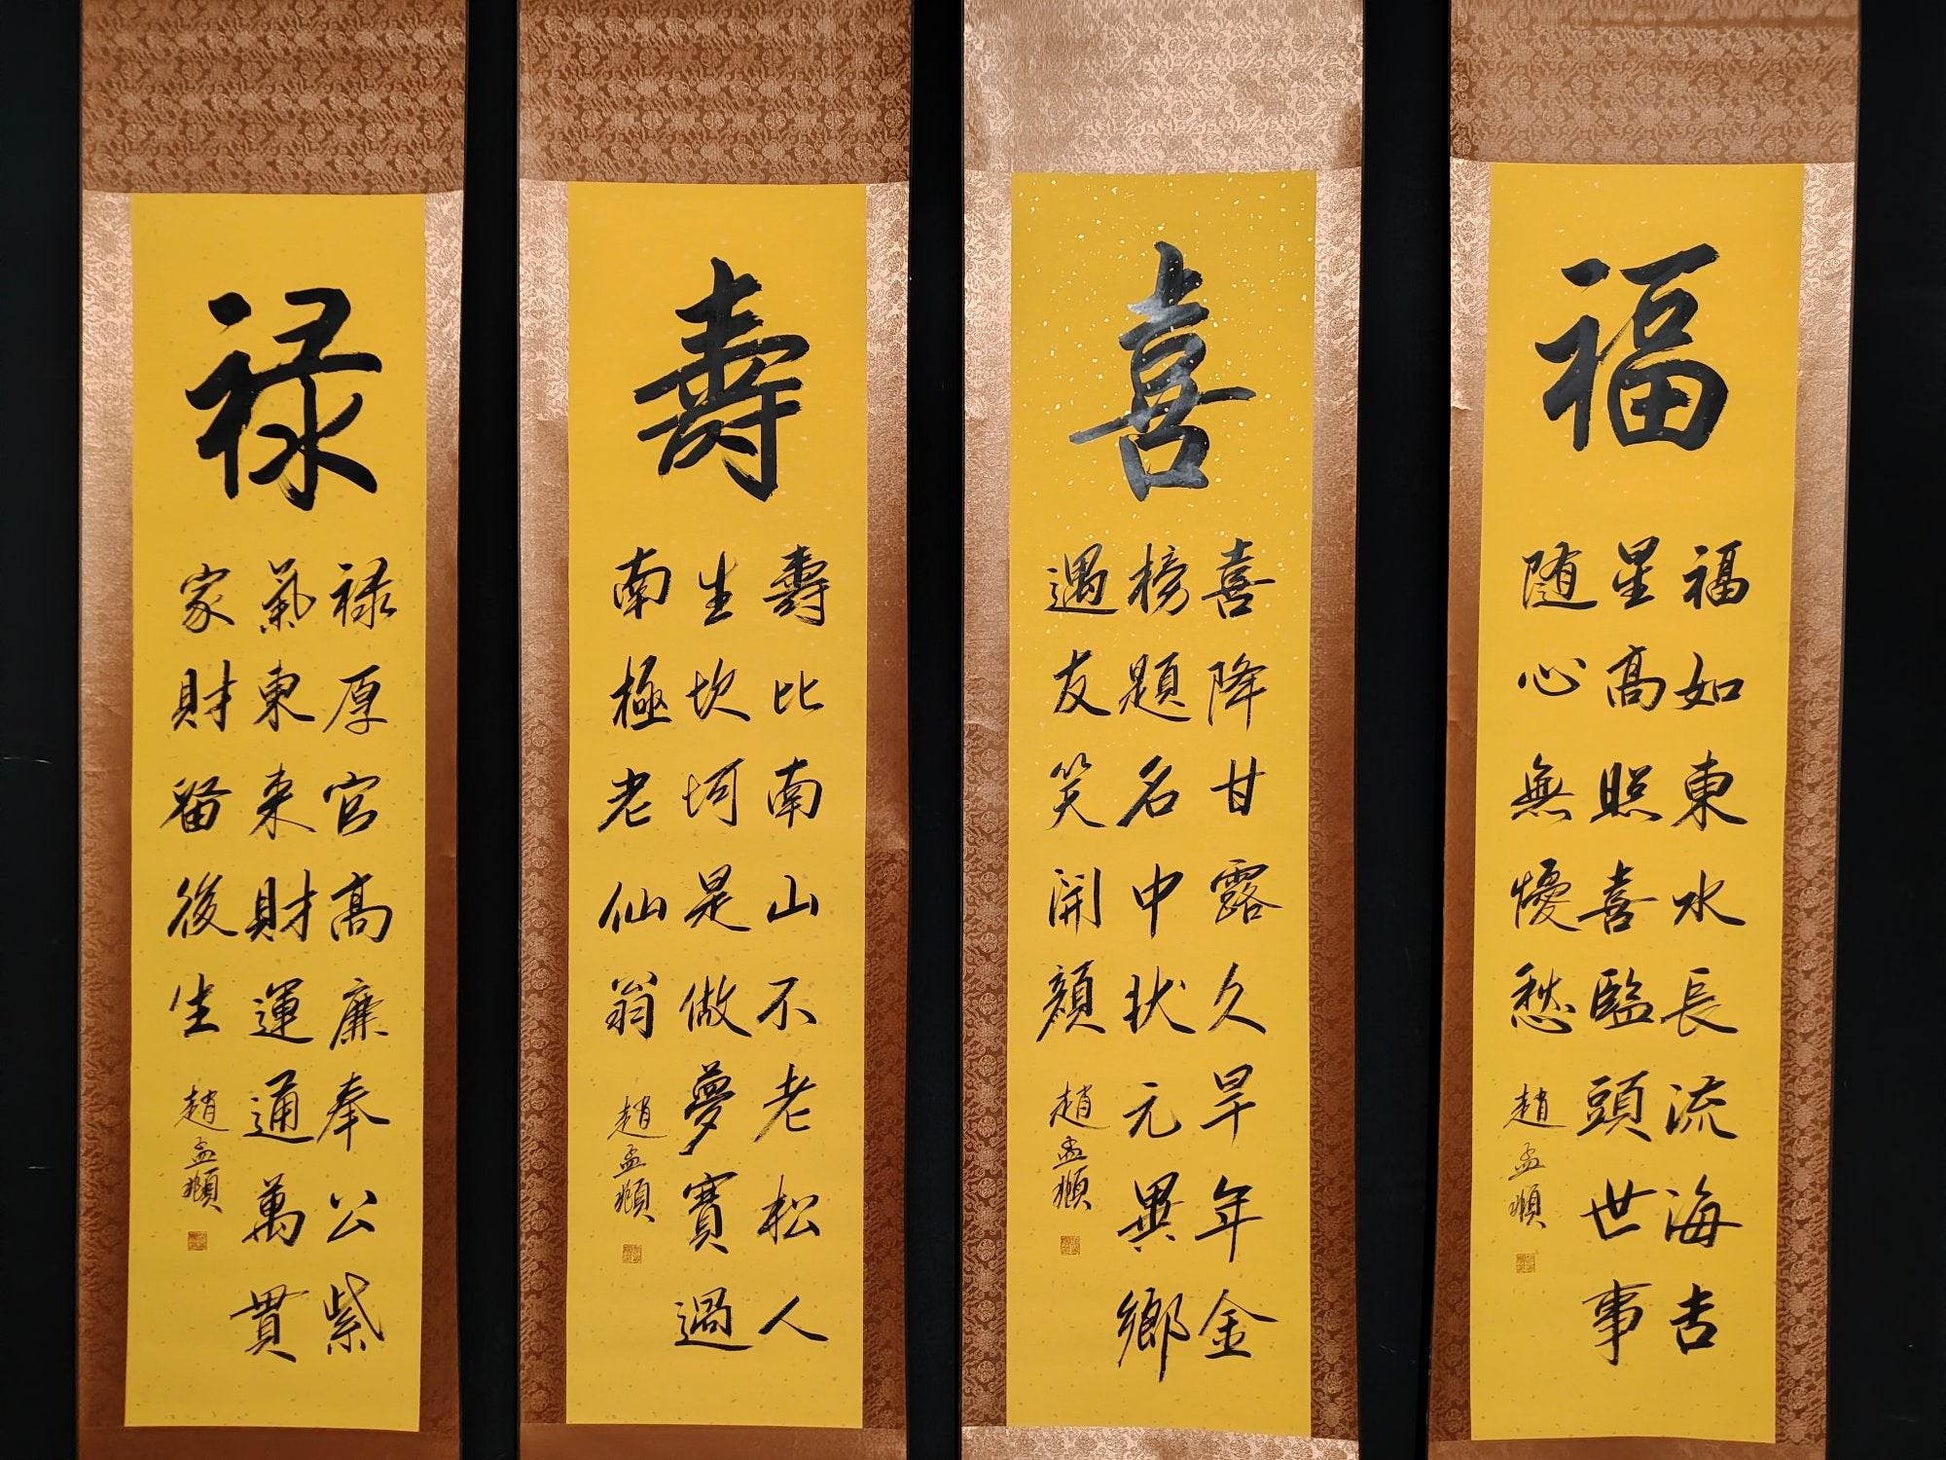 福
福如東水長流海吉
星高照喜臨頭世事
随心無懮愁
趙孟頫
喜
喜降甘露久旱年金
榜題名中状元異鄉
遇友笑開顏
趙孟頫
壽
壽比南山不老松人
生坎坷是做夢寶過
南極老仙翁
趙孟頫
禄
禄厚官高廉奉公紫
氣東来財運通萬貫
家財留後生
趙孟頫